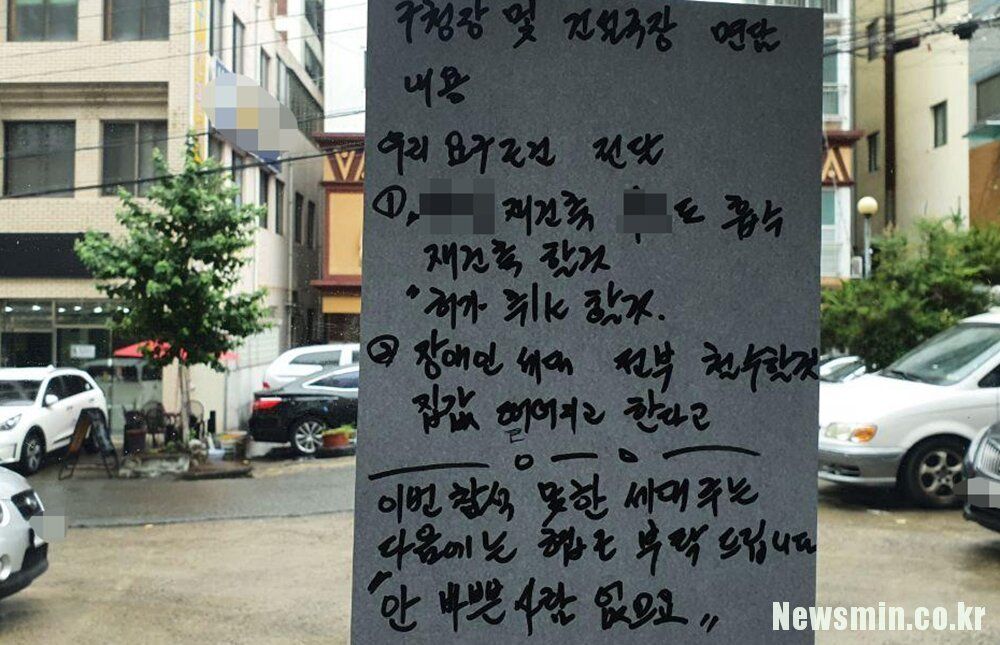 구청장 및 건설국장 면담
내용
우리 요구조건 전달
①, 재건축 도 흡수
재건축 할것
"허가 취소 할것.
② 장애인 세대 전부 철수할것
집값 떨어지고 한다고
이번 참석 못한 세대주는
다음에는 협조 부탁 드립니다
"안 바쁜 사람 없으요"
Newsmin.co.kr